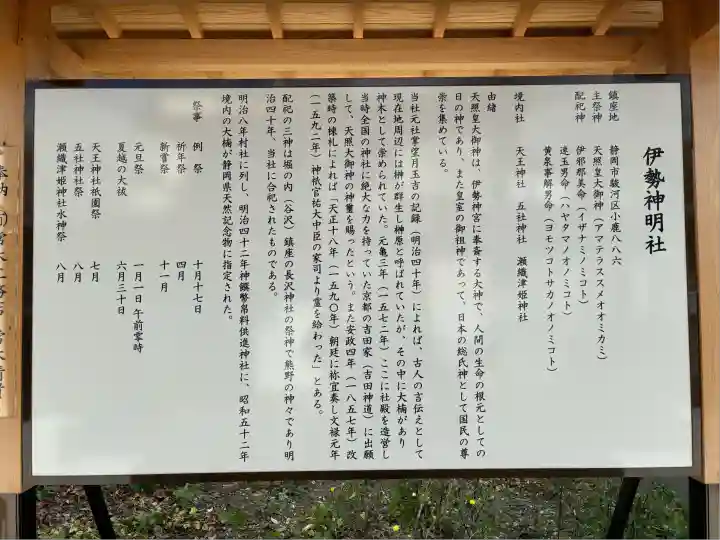 伊勢神明社
鎮座地　静岡市駿河区小鹿八八六
主祭神　天照皇大御神（アマテラススメオオミカミ）
配祀神　伊邪那美命（イザナミノミコト）
速玉男命（ハヤタマノオノミコト）
黄泉事解男命（ヨモツコトサカノオノミコト）
境内社　天王神社　五社神社　瀬織津姫神社
由緒
天照皇大御神は、伊勢神宮に奉斎する大神で、人間の生命の根元としての
日の神であり、また皇室の御祖神であって、日本の総氏神として国民の尊
崇を集めている。
当社元社掌望月玉吉の記録（明治四十年）によれば、古人の言伝えとして
現在地周辺には榊が群生し榊原と呼ばれていたが、その中に大楠があり
神木として崇められていた。元亀三年（一五七二年）ここに社殿を造営し
当時全国の神社に絶大な力を持っていた京都の吉田家（吉田神道）に出願
して、天照大御神の神璽を賜ったという。また安政四年（一八五七年）改
築時の棟札によれば「天正十八年（一五九〇年）朝廷に祢宜奏し文禄元年
（一五九二年）神祇官祐大中臣の家司より霊を給わった」とある。
配祀の三神は堀の内（谷沢）鎮座の長沢神社の祭神で熊野の神々であり明
治四十年、当社に合祀されたものである。
明治八年村社に列し、明治四十二年神饌幣帛料供進神社に、昭和五十二年
境内の大楠が静岡県天然記念物に指定された。
祭事　例祭　十月十七日
祈年祭　四月
新嘗祭　十一月
元旦祭　一月一日 午前零時
夏越の大祓　六月三十日
天王神社祇園祭　七月
五社神社祭　八月
瀬織津姫神社水神祭　八月
奉納